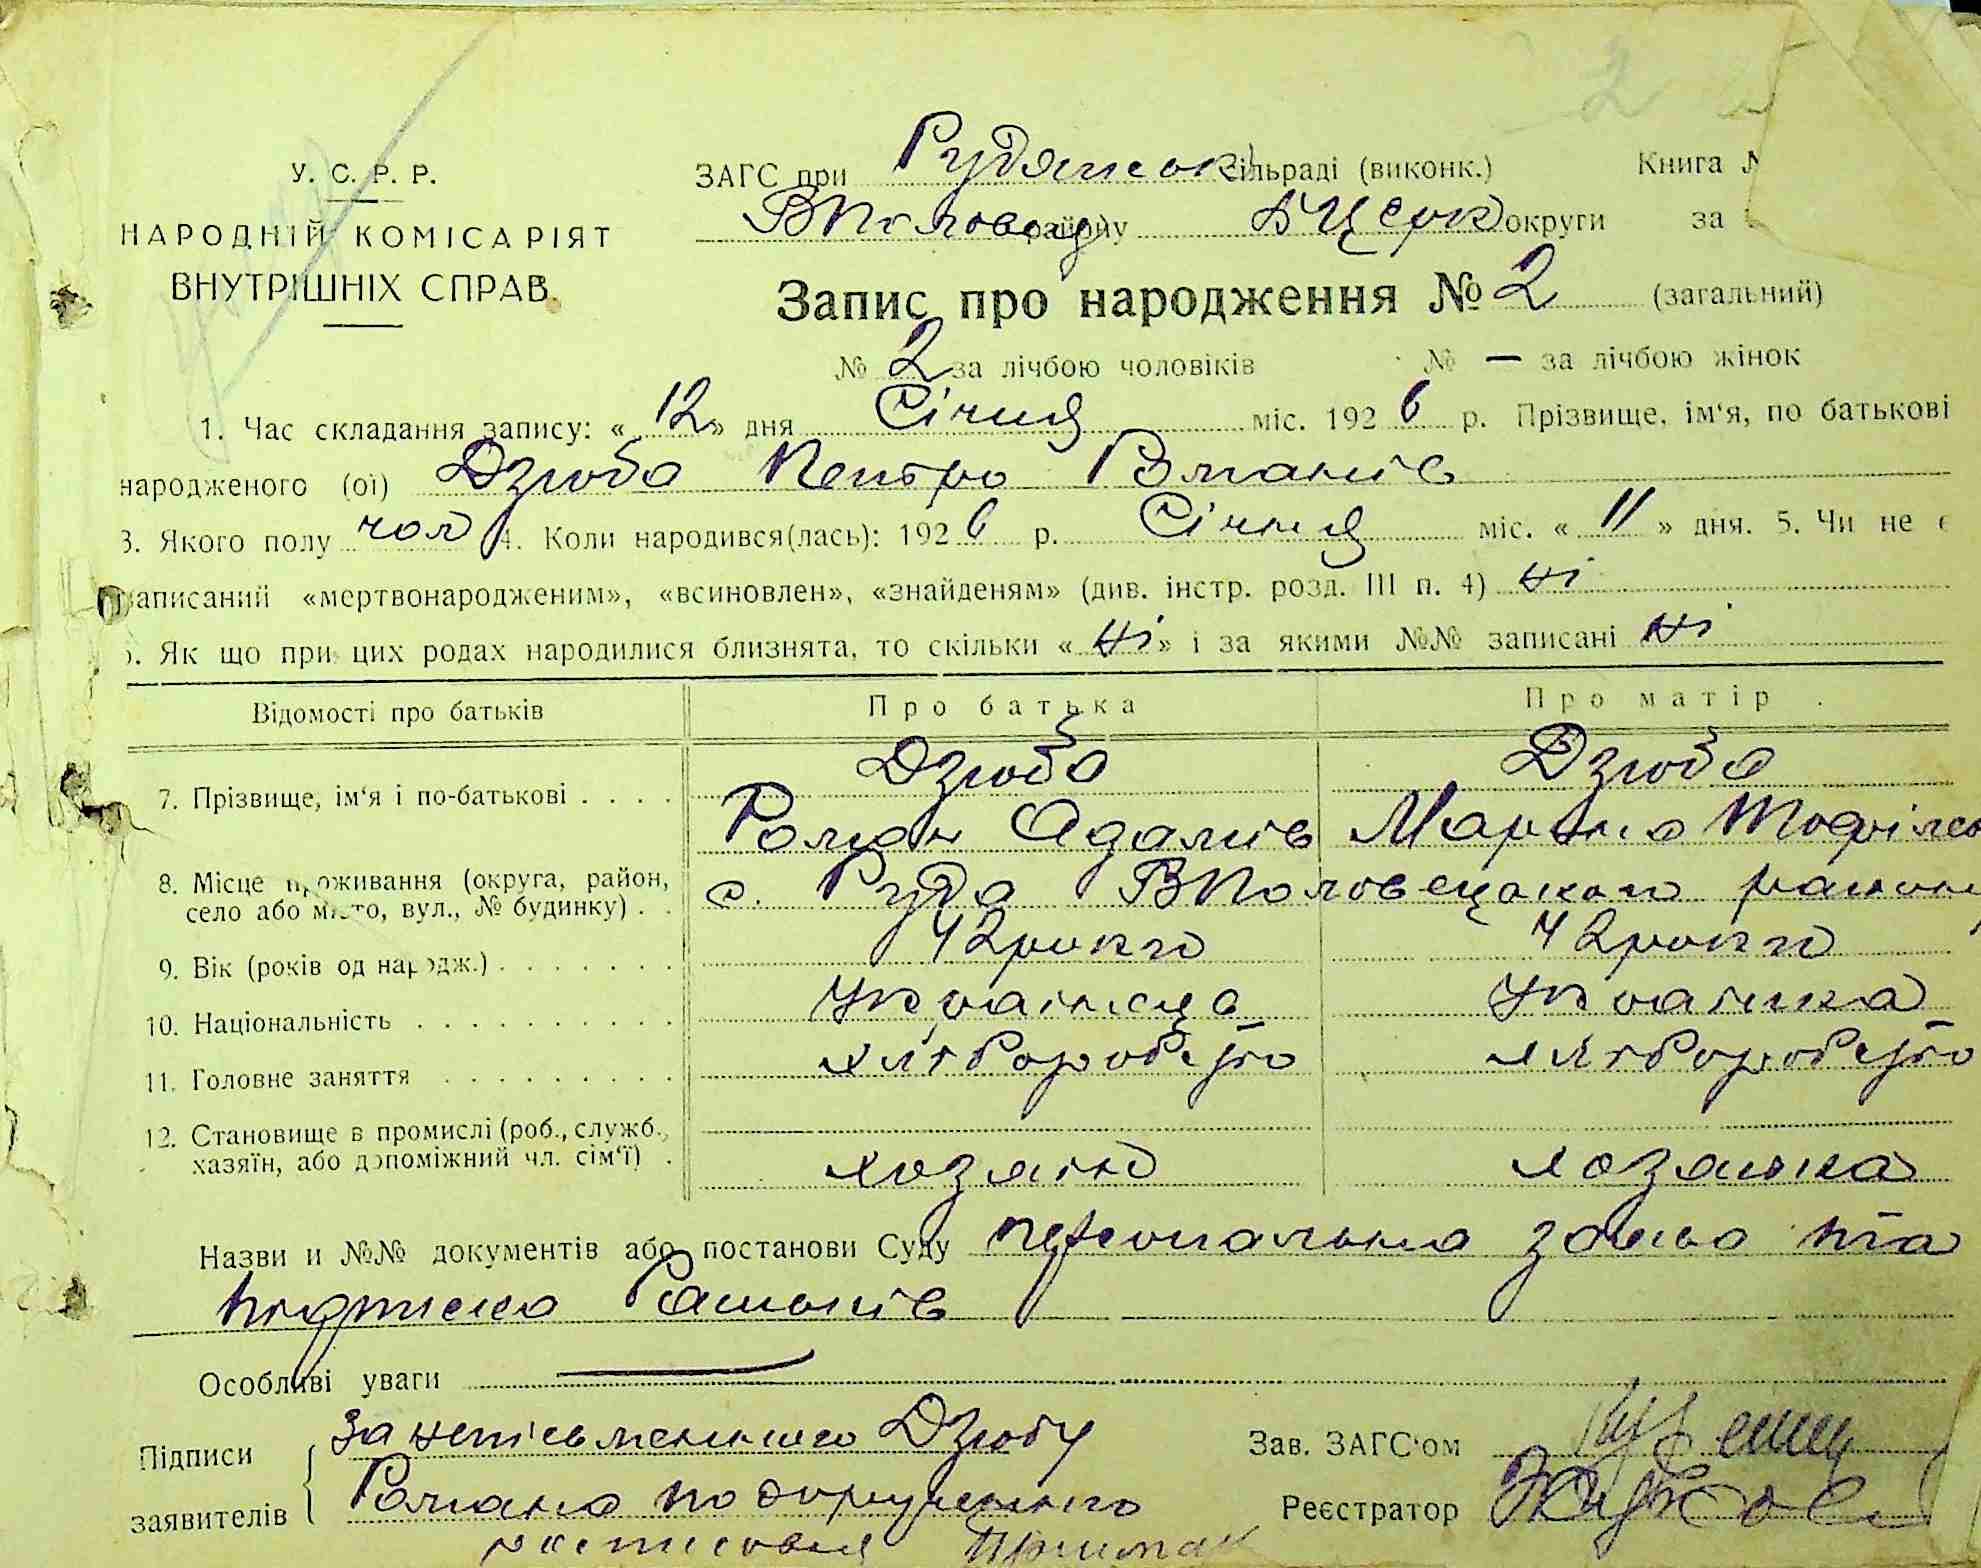 2
У. С. Р. Р.
НАРОДНІЙ КОМІСАРІЯТ
ВНУТРІШНІХ СПРАВ.
ЗАГС при Рудянськ сільраді (виконк.) Книга №
ВПоловец району БЦерк округи за
Запис про народження № 2 (загальний)
№ 2 за лічбою чоловіків № — за лічбою жінок
1. Час складання запису: « 12 » дня Січня міс. 192 6 р. Прізвище, ім‘я, по батькові
народженого (ої) Дзюба Петро Романів
3. Якого полу чол 4. Коли народився(лась): 192 6 р. Січня міс. « 11 » дня. 5. Чи не є
записаний «мертвонародженим», «всиновлен», «знайденям» (див. інстр. розд. III п. 4) ні
6. Як що при цих родах народилися близнята, то скільки « ні » і за якими №№ записані ні
Відомості про батьків Про батька Про матір
7. Прізвище, ім‘я і по-батькові . . . . Дзюба Дзюба
Роман Адамів Марина
8. Місце проживання (округа, район,
село або місто, вул., № будинку) . . с. Руда ВПоловецького району
9. Вік (років од народж.) . . . . . . . 42 роки 42 роки
10. Національність . . . . . . . . . . Українець Українка
11. Головне заняття . . . . . . . . . хліборобств хліборобств
12. Становище в промислі (роб., служб.,
хазяїн, або допоміжний чл. сім‘ї) . хозяін хозяйка
Назви и №№ документів або постанови Суду персональна заява та
підписка батьків
Особливі уваги —
Підписи за неписьменного Дзюбу
заявителів Романа по доручению
росписовся Примак
Зав. ЗАГС‘ом
Реєстратор